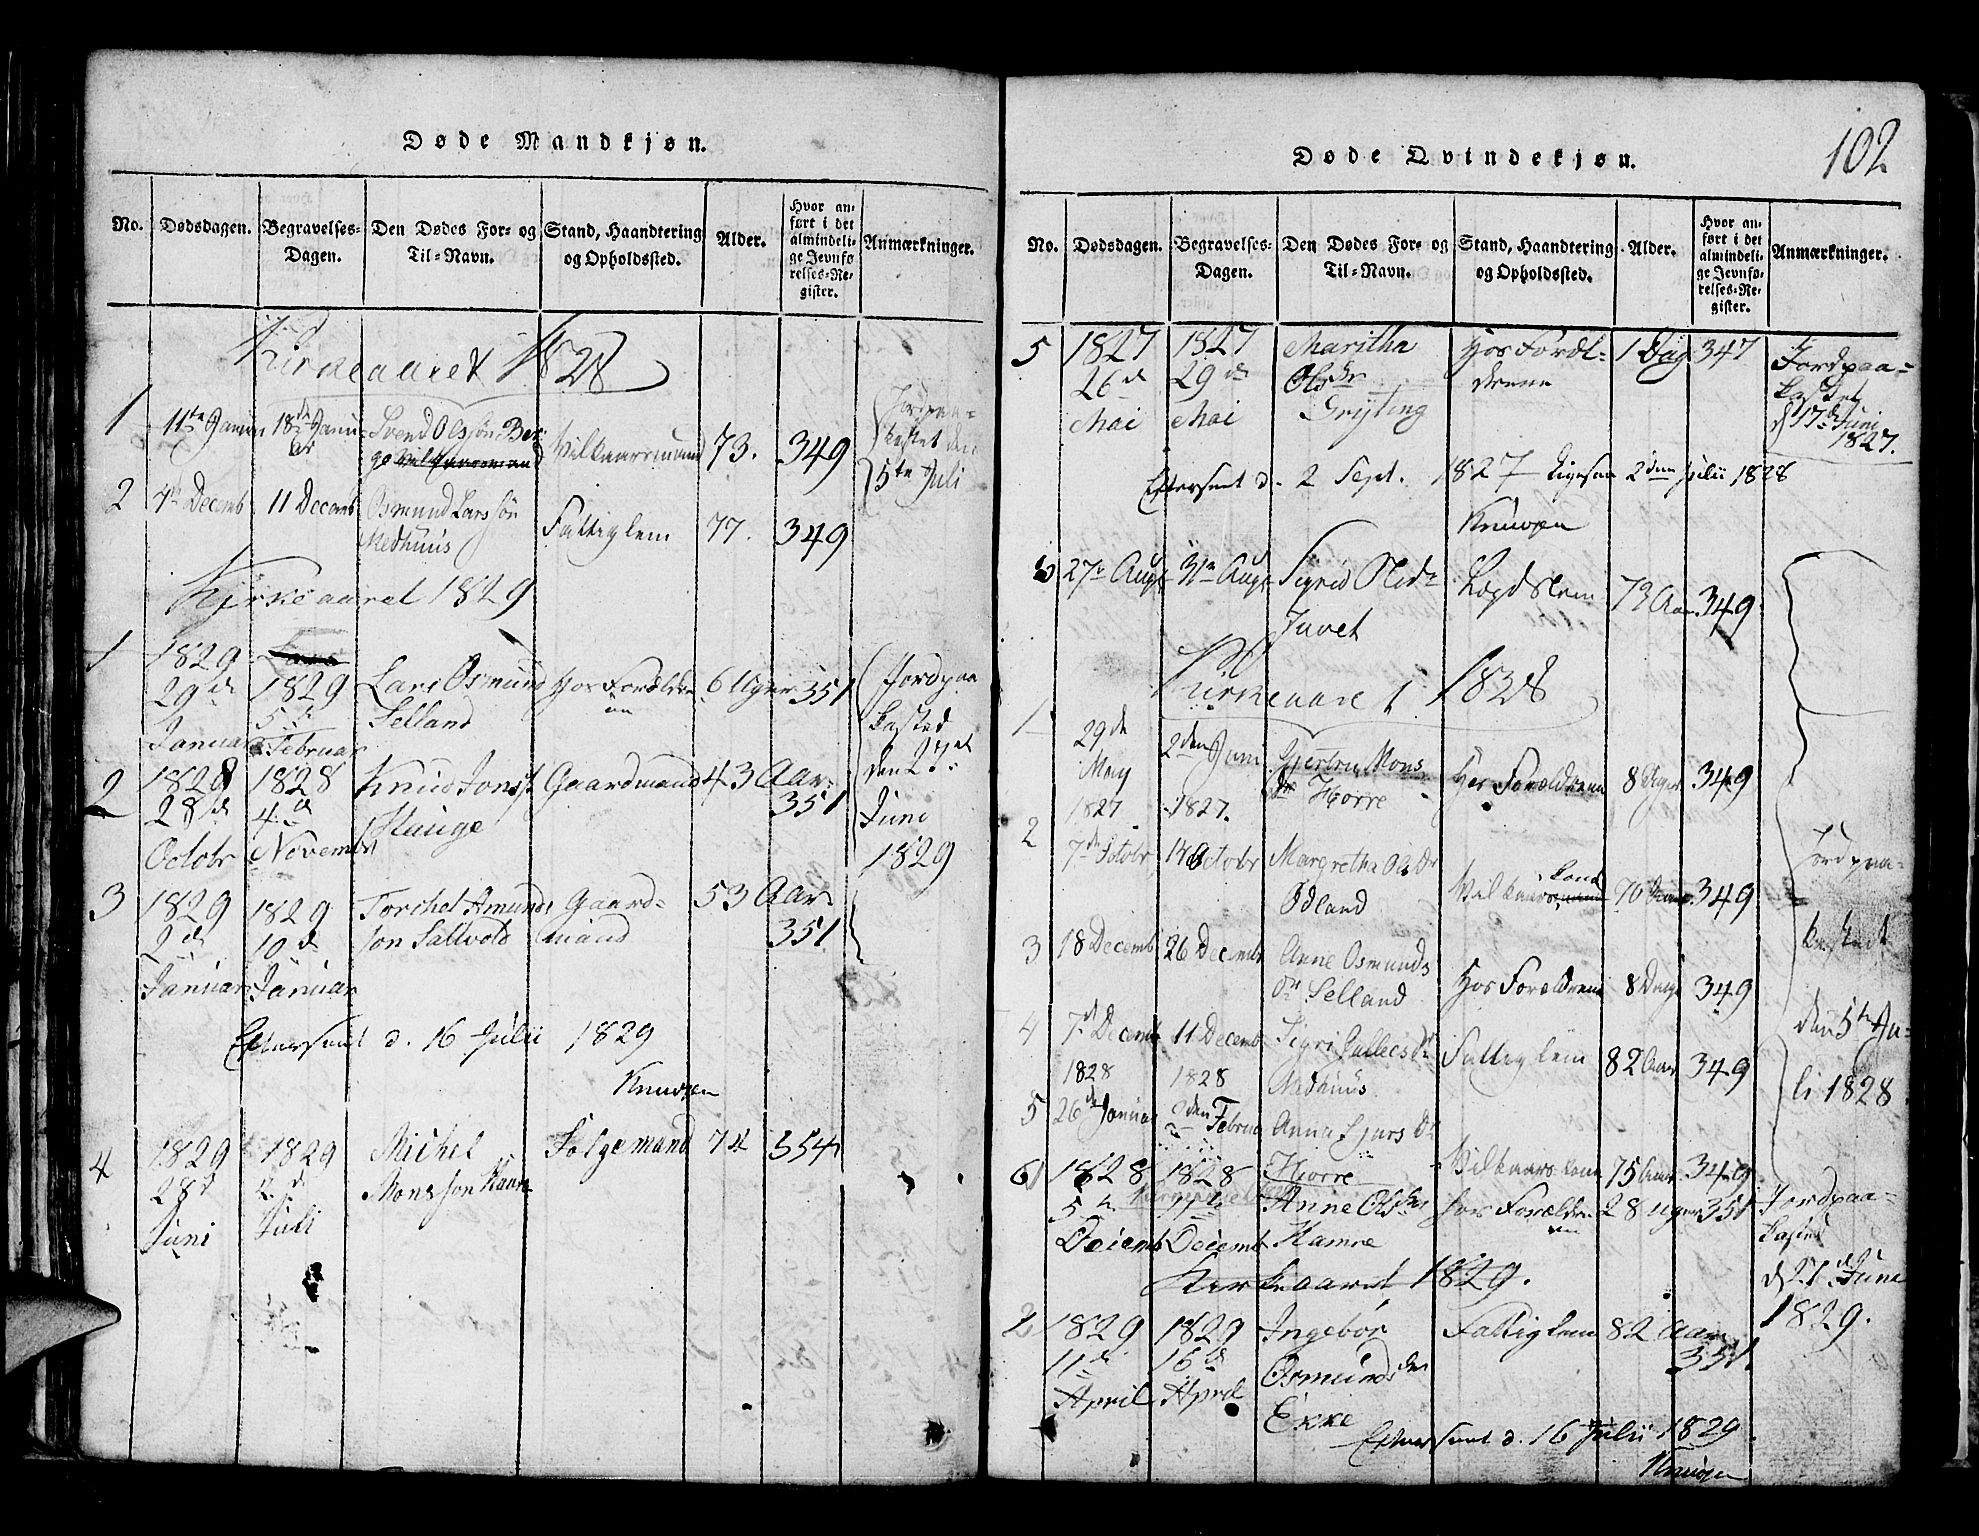 Døde Mandkjøn.
No. Dødsdagen. Begravelses-Dagen. Den Dødes For- og Til-Navn. Stand, Haandtering og Opholdssted. Alder. Hvor anført i det almindelige Jevnførelses-Register. Anmærkninger.
Kirkeaaret 1828
1 11te Januar 18de Januar Svend Olssøn Berge Vilkaarsmand 73. 349 Jordpaakastet den 5te Juli
2 4de Decemb 11 Decemb Osmund Larssøn Medhuus Fattiglem 77. 349
Kirkeaaret 1829
1 1829 29de Januar 1829 5te Februar Lars Osmund Selland Hos Forældrene 6 Uger 351 Jordpaakasted den 27de Juni 1829
2 1828 28de Octobr 1828 4de Novembr Knud Jonss Hauge Gaardmand 43 Aar 351
3 1829 2de Januar 1829 10de Januar Torchel Amundsson Saltvold Gaardmand 53 Aar 351
Efterseet d. 16 Julii 1829
Knudsen
4 1829 28d Juni 1829 2d Juli Michel Monsson Folgemand 74 354
Døde Qvindekjøn.
102
No. Dødsdagen. Begravelses-Dagen. Den Dødes For- og Til-Navn. Stand, Haandtering og Opholdssted. Alder. Hvor anført i det almindelige Jevnførelses-Register. Anmærkninger.
5 1827 26de Mai 1827 29de Mai Maritha Olsdr Gryting Hos Forældrene 1 Dag 347 Jordpaakastet d 17de Juni 1827.
Efterseet d. 2 Sept. 1827 Ligesaa 2den Julii 1828
Knudsen
6 27de Aug 31te Aug Sigrid Juvet Lægdslem 73 Aar 349
Kirkeaaret 1828
1 29de May 1827 2den Juni 1827. Gjertru Monsdr Horre Hos Forældrene 8 Uger 349
2 7de Octobr 14 Octobr Margretha Olsdr Ødland Vilkaarskone 70 Aar 349 Jordpaakastet den 5te Juli 1828
3 18 Decemb 26 Decembr Anne Osmundsdr Selland Hos Forældrene 8 Dage 349
4 7de Decemb 11 Decemb Sigri Pallesdr Medhuus Fattiglem 82 Aar 349
5 1828 26de Januar 1828 2den Februar Anna Sjursdr Horre Vilkaarskone 75 Aar 349
6 1828 5te Decemb 1828 Decemb Anne Olsdr Hamre Hos Forældrene 28 Uger 351 Jordpaakasted d 27de June 1829.
Kirkeaaret 1829.
1829 11de April 1829 16de April Ingebor Osmundsdtr Ekke Fattiglem 82 Aar 351
Efterseet d. 16 Julii 1829.
Knudsen